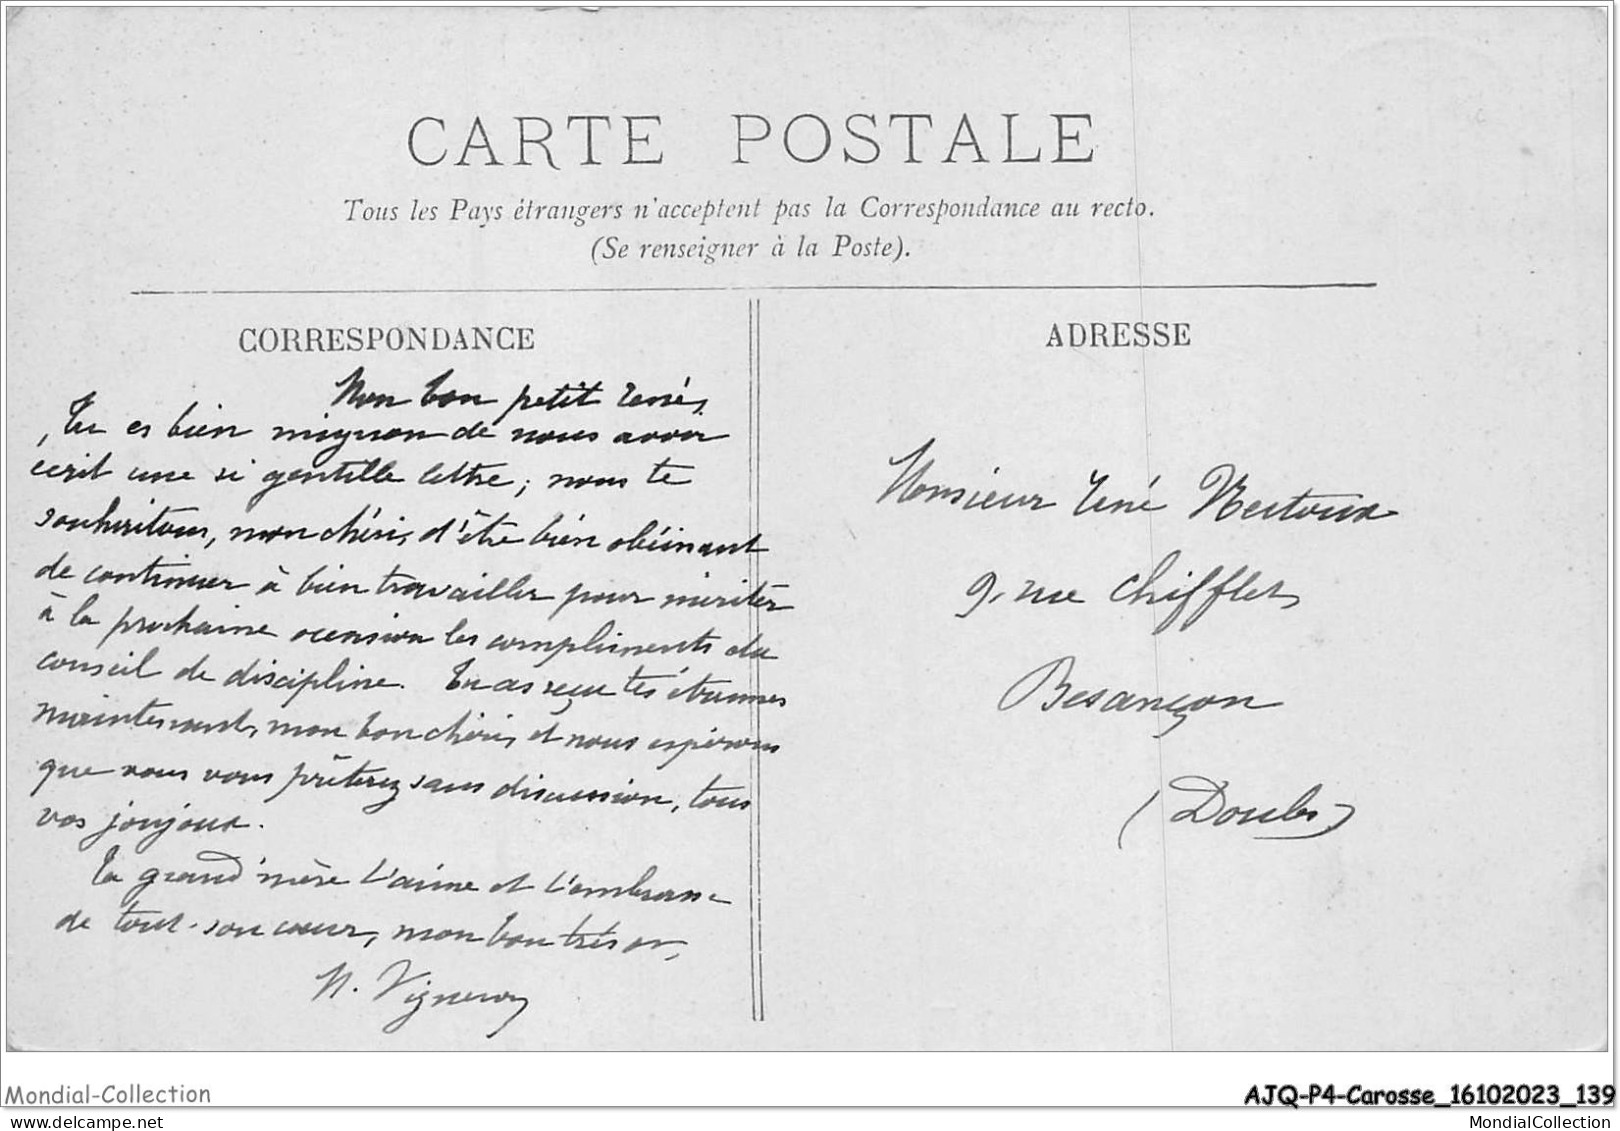 CARTE POSTALE
Tous les Pays étrangers n'acceptent pas la Correspondance au recto.
(Se renseigner à la Poste).
CORRESPONDANCE
Mon bon petit René,
Tu es bien mignon de nous avoir
écrit une si gentille lettre; nous te
souhaitons, mon chéri, d'être bien obéissant
de continuer à bien travailler pour mériter
à la prochaine occasion les compliments du
conseil de discipline. Tu as reçu tes étrennes
maintenant, mon bon chéri, et nous espérons
que vous vous prêterez sans discussion, tous
vos joujoux.
Ta grand'mère t'aime et t'embrasse
de tout son cœur, mon bon trésor,
Vigneron
ADRESSE
Monsieur René
9, rue Chifflet
Besançon
(Doubs)
Mondial-Collection
AJQ-P4-Carosse_16102023_139
mondial-collection.com
MondialCollection